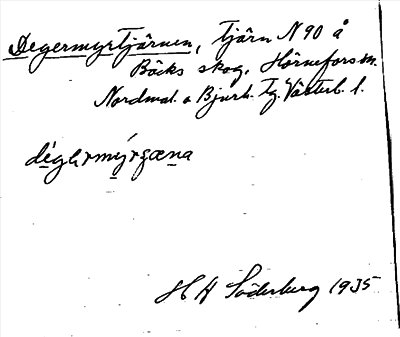 Degermyrtjärnen, tjärn N 90 å
Bäcks skog, Hörnefors sn.
Nordmal. o Bjurh. tg. Västerb. l.
H H Söderberg 1935